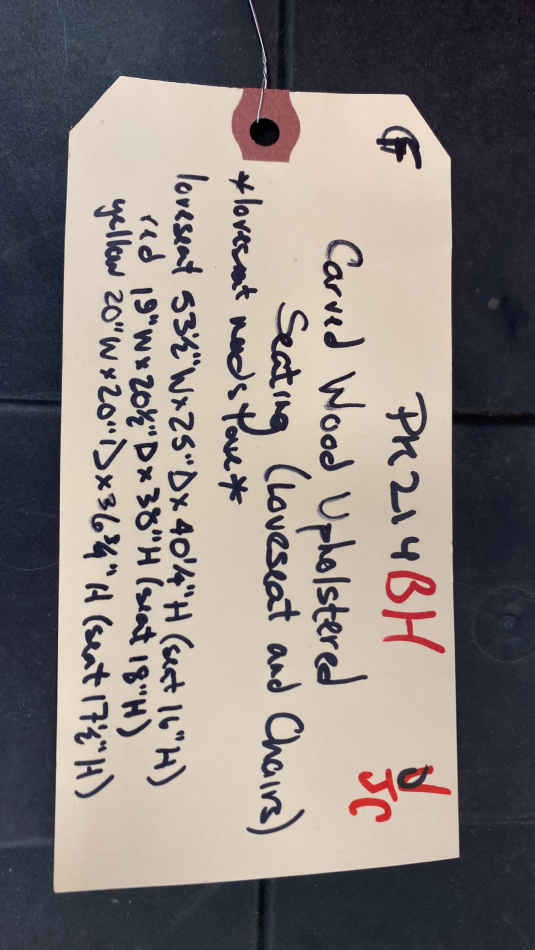 PK214BH
Carved Wood Upholstered
Seating (Loveseat and Chairs)
*loveseat needs four*
loveseat 53½"W x 25"D x 40¼"H (seat 16"H)
red 19"W x 20½"D x 38"H (seat 18"H)
yellow 20"W x 20"D x 36¾"H (seat 17½"H)
JC